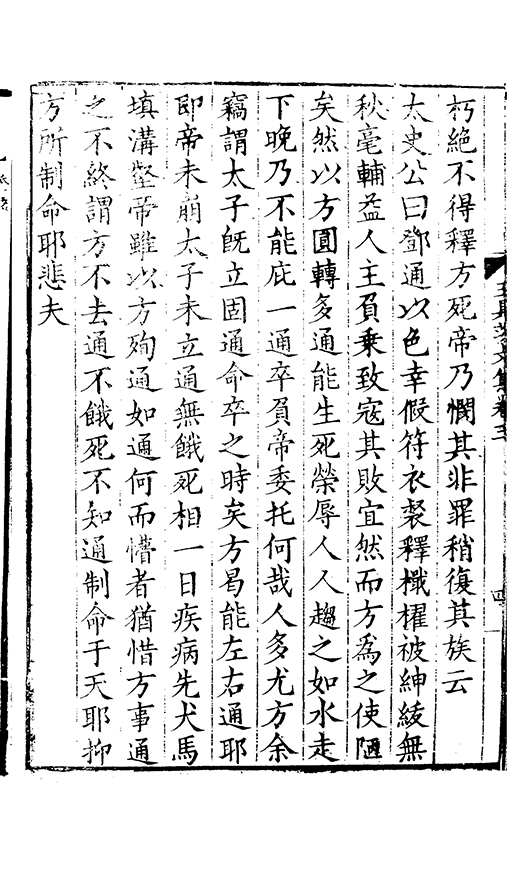 朽絶不得釋方死帝乃憫其非罪稍復其族云
太史公曰鄧通以色幸假符衣裻釋檝櫂被紳綾無
秋毫輔益人主負乗致寇其敗宜然而方爲之使陋
矣然以方圓轉多通能生死榮辱人人趨之如水走
下晚乃不能庇一通卒負帝委托何哉人多尤方余
竊謂太子旣立固通命卒之時矣方曷能左右通耶
即帝未崩太子未立通無餓死相一日疾病先犬馬
填溝壑帝雖以方殉通如通何而惜者猶惜方事通
之不終謂方不去通不餓死不知通制命于天耶抑
方所制命耶悲夫
文集卷三
四